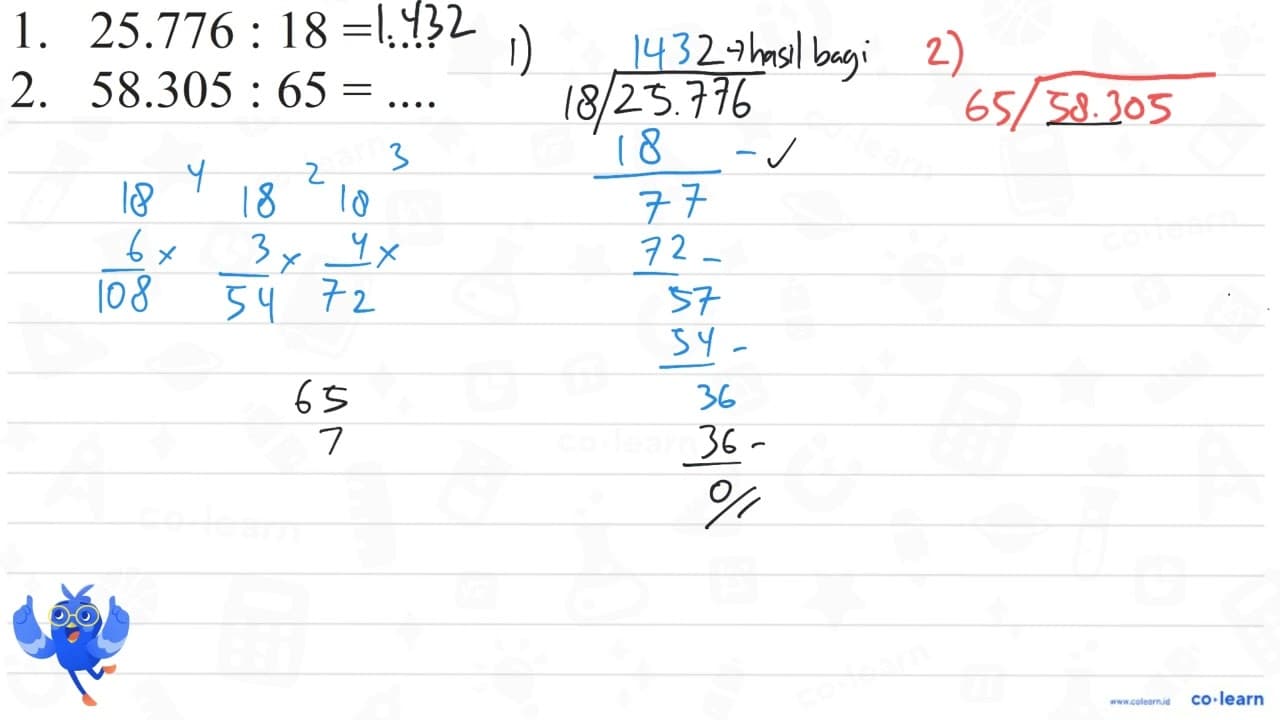 1. 25.776 : 18 = 1.432
2. 58.305 : 65 = ....
1)
1432 → hasil bagi
18/25.776
18 - ✓
77
72 -
57
54 -
36
36 -
0//
2)
65/58.305
4 2 3
18 18 18
6 x 3 x 4 x
108 54 72
65
7
www.colearn.id co·learn